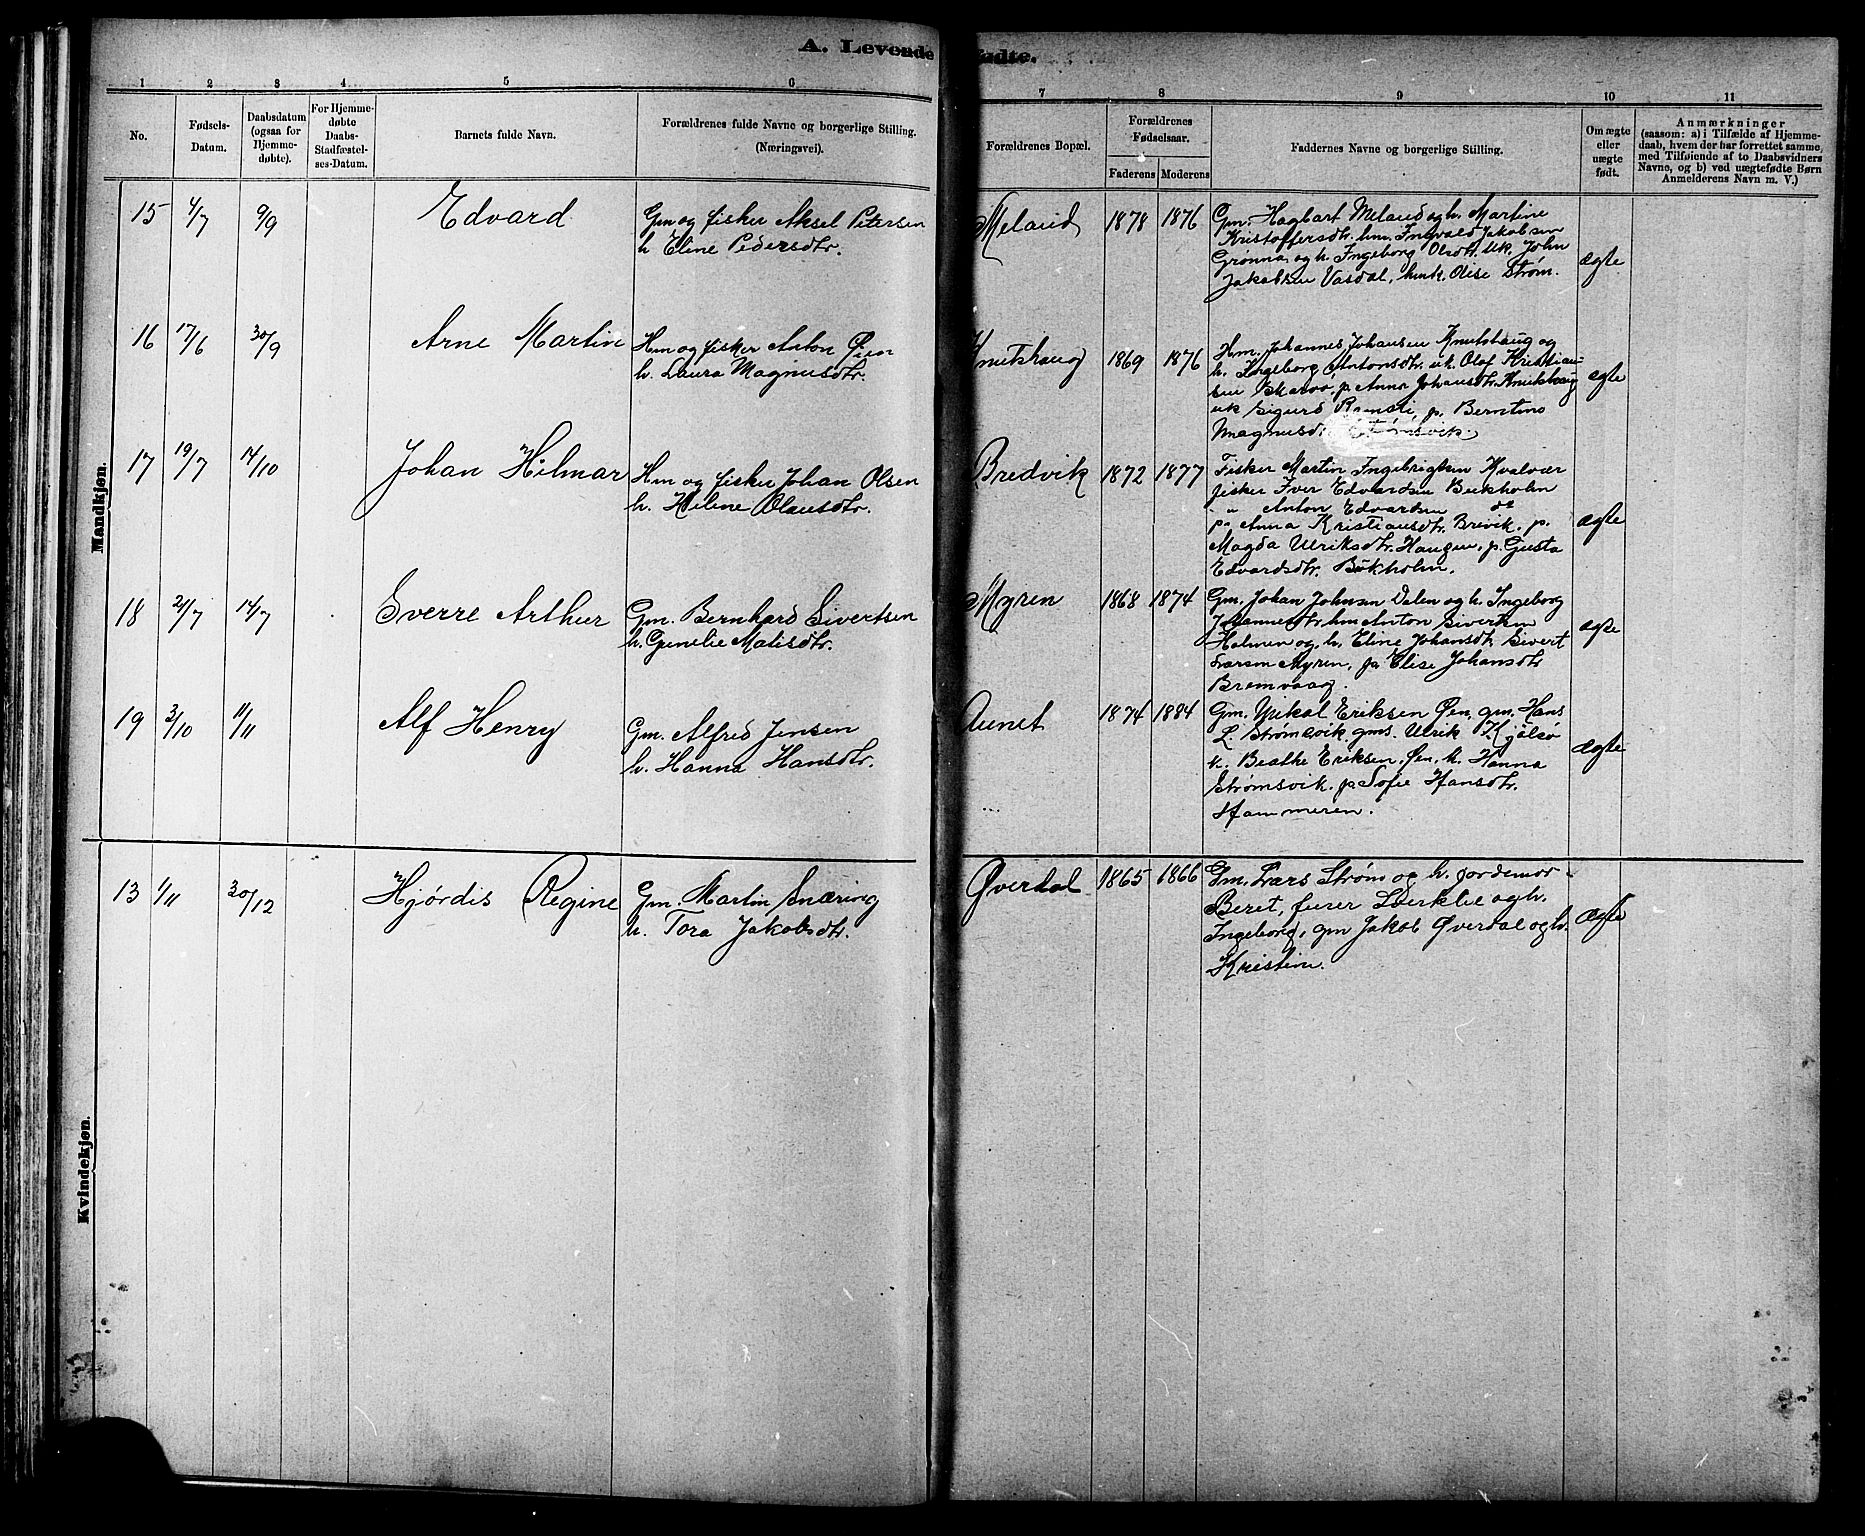 A. Levende fødte.
1 2 3 4 5 6 7 8 9 10 11
No.
Fødsels-
Datum.
Daabsdatum
(ogsaa for
Hjemme-
døbte).
For Hjemme-
døbte
Daabs-
Stadfæstel-
ses-Datum.
Barnets fulde Navn.
Forældrenes fulde Navne og borgerlige Stilling.
(Næringsvei).
Forældrenes Bopæl.
Forældrenes
Fødselsaar.
Faderens Moderens
Faddernes Navne og borgerlige Stilling.
Om ægte
eller
uægte
født.
Anmærkninger
(saasom: a) i Tilfælde af Hjemme-
daab, hvem der har forrettet samme,
med Tilføiende af to Daabsvidners
Navne, og b) ved uægtefødte Børn
Anmelderens Navn m. V.)
Mandkjøn.
15 4/7 9/9 Edvard
Gm og fisker Aksel Petersen
h Eline Pedersdtr.
Meland 1878 1876
Gm. Hagbart Meland og h. Martine
Kristoffersdtr. hm. Ingvald Jakobsen
Grønna og h. Ingeborg Olsdtr. Uk. John
Jakobsen Vasdal, hmk. Olise Strøm.
ægte
16 17/6 30/9 Arne Martin
Hm og fisker Anton
h. Laura Magnusdtr.
Knutshaug 1869 1876
Hm. Johannes Johansen Knutshaug og
h. Ingeborg Antonsdtr. uk. Olaf Kristian-
sen p. Anna Johansdtr. Knutshaug
uk Sigurd p. Berntine
Strømsvik.
ægte
17 19/7 14/10 Johan Hilmar
Hm og fisker Johan Olsen
h. Helene Olausdtr.
Bredvik 1872 1877
Fisker Martin Ingebrigtsen Kvalvær
fisker Iver Edvardsen Bukholm
" " Anton Edvardsen do
p. Anna Kristiansdtr. Brevik. p.
Magda Ulriksdtr. Haugen, p. Gusta
Edvardsdtr. Bukholm.
ægte
18 21/7 14/7 Sverre Arthur
Gm. Bernhard Sivertsen
h. Gunelie Matisdtr.
Myren 1868 1874
Gm. Johan Johnsen Dalen og h. Ingeborg
Johannesdtr. hm Anton Sivertsen
Holmen og h. Eline Johansdtr. Sivert
Larsen Myren, p. Elise Johansdtr
Bremvaag.
ægte
19 3/10 11/11 Alf Henry
Gm. Alfred Jensen
h. Hanna Hansdtr.
Aunet 1874 1884
Gm. Mikal Eriksen Øen, gm. Hans
L. Strømsvik, gms. Ulrik Kjølsø
k. Beathe Eriksen, Øen, k. Hanna
Strømsvik. p. Sofie Hansdtr.
Hammeren.
ægte
Kvindekjøn.
13 1/11 30/12 Hjørdis Regine
Gm. Martin Snæring
h. Tora Jakobsdtr.
Øverdal 1865 1866
Gm. Lars Strøm og h. jordemor
Beret, furer og h.
Ingeborg, gm Jakob Øverdal og h.
Kristine.
ægte